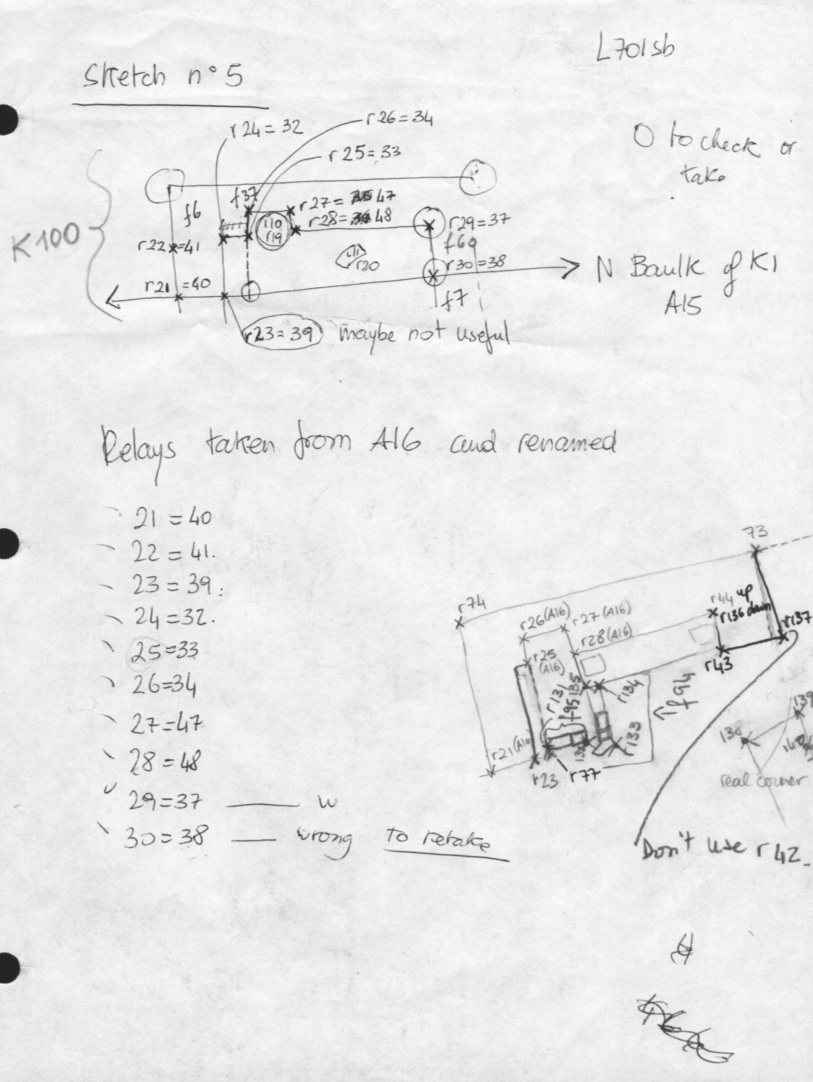 L701sb
Sketch n°5
O to check or
take
r24=32
r26=34
r25=33
f37
f6
r27= 47
r28= 48
110
r19
r29=37
f69
K100
r22=41
r20
r30=38
r21=40
f7
N Baulk of K1
A15
r23=39 maybe not useful
Relays taken from A16 and renamed
21=40
22=41.
23=39.
24=32.
25=33
26=34
27=47
28=48
29=37 — w
30=38 — wrong to retake
73
r74
r26(A16)
r27(A16)
r28(A16)
r44 up
r136 down
r137
r25
(A16)
r43
r131
f95
135
r134
f94
r133
r21(A16)
r23
r77
139
138
140
real corner
Don't use r42.